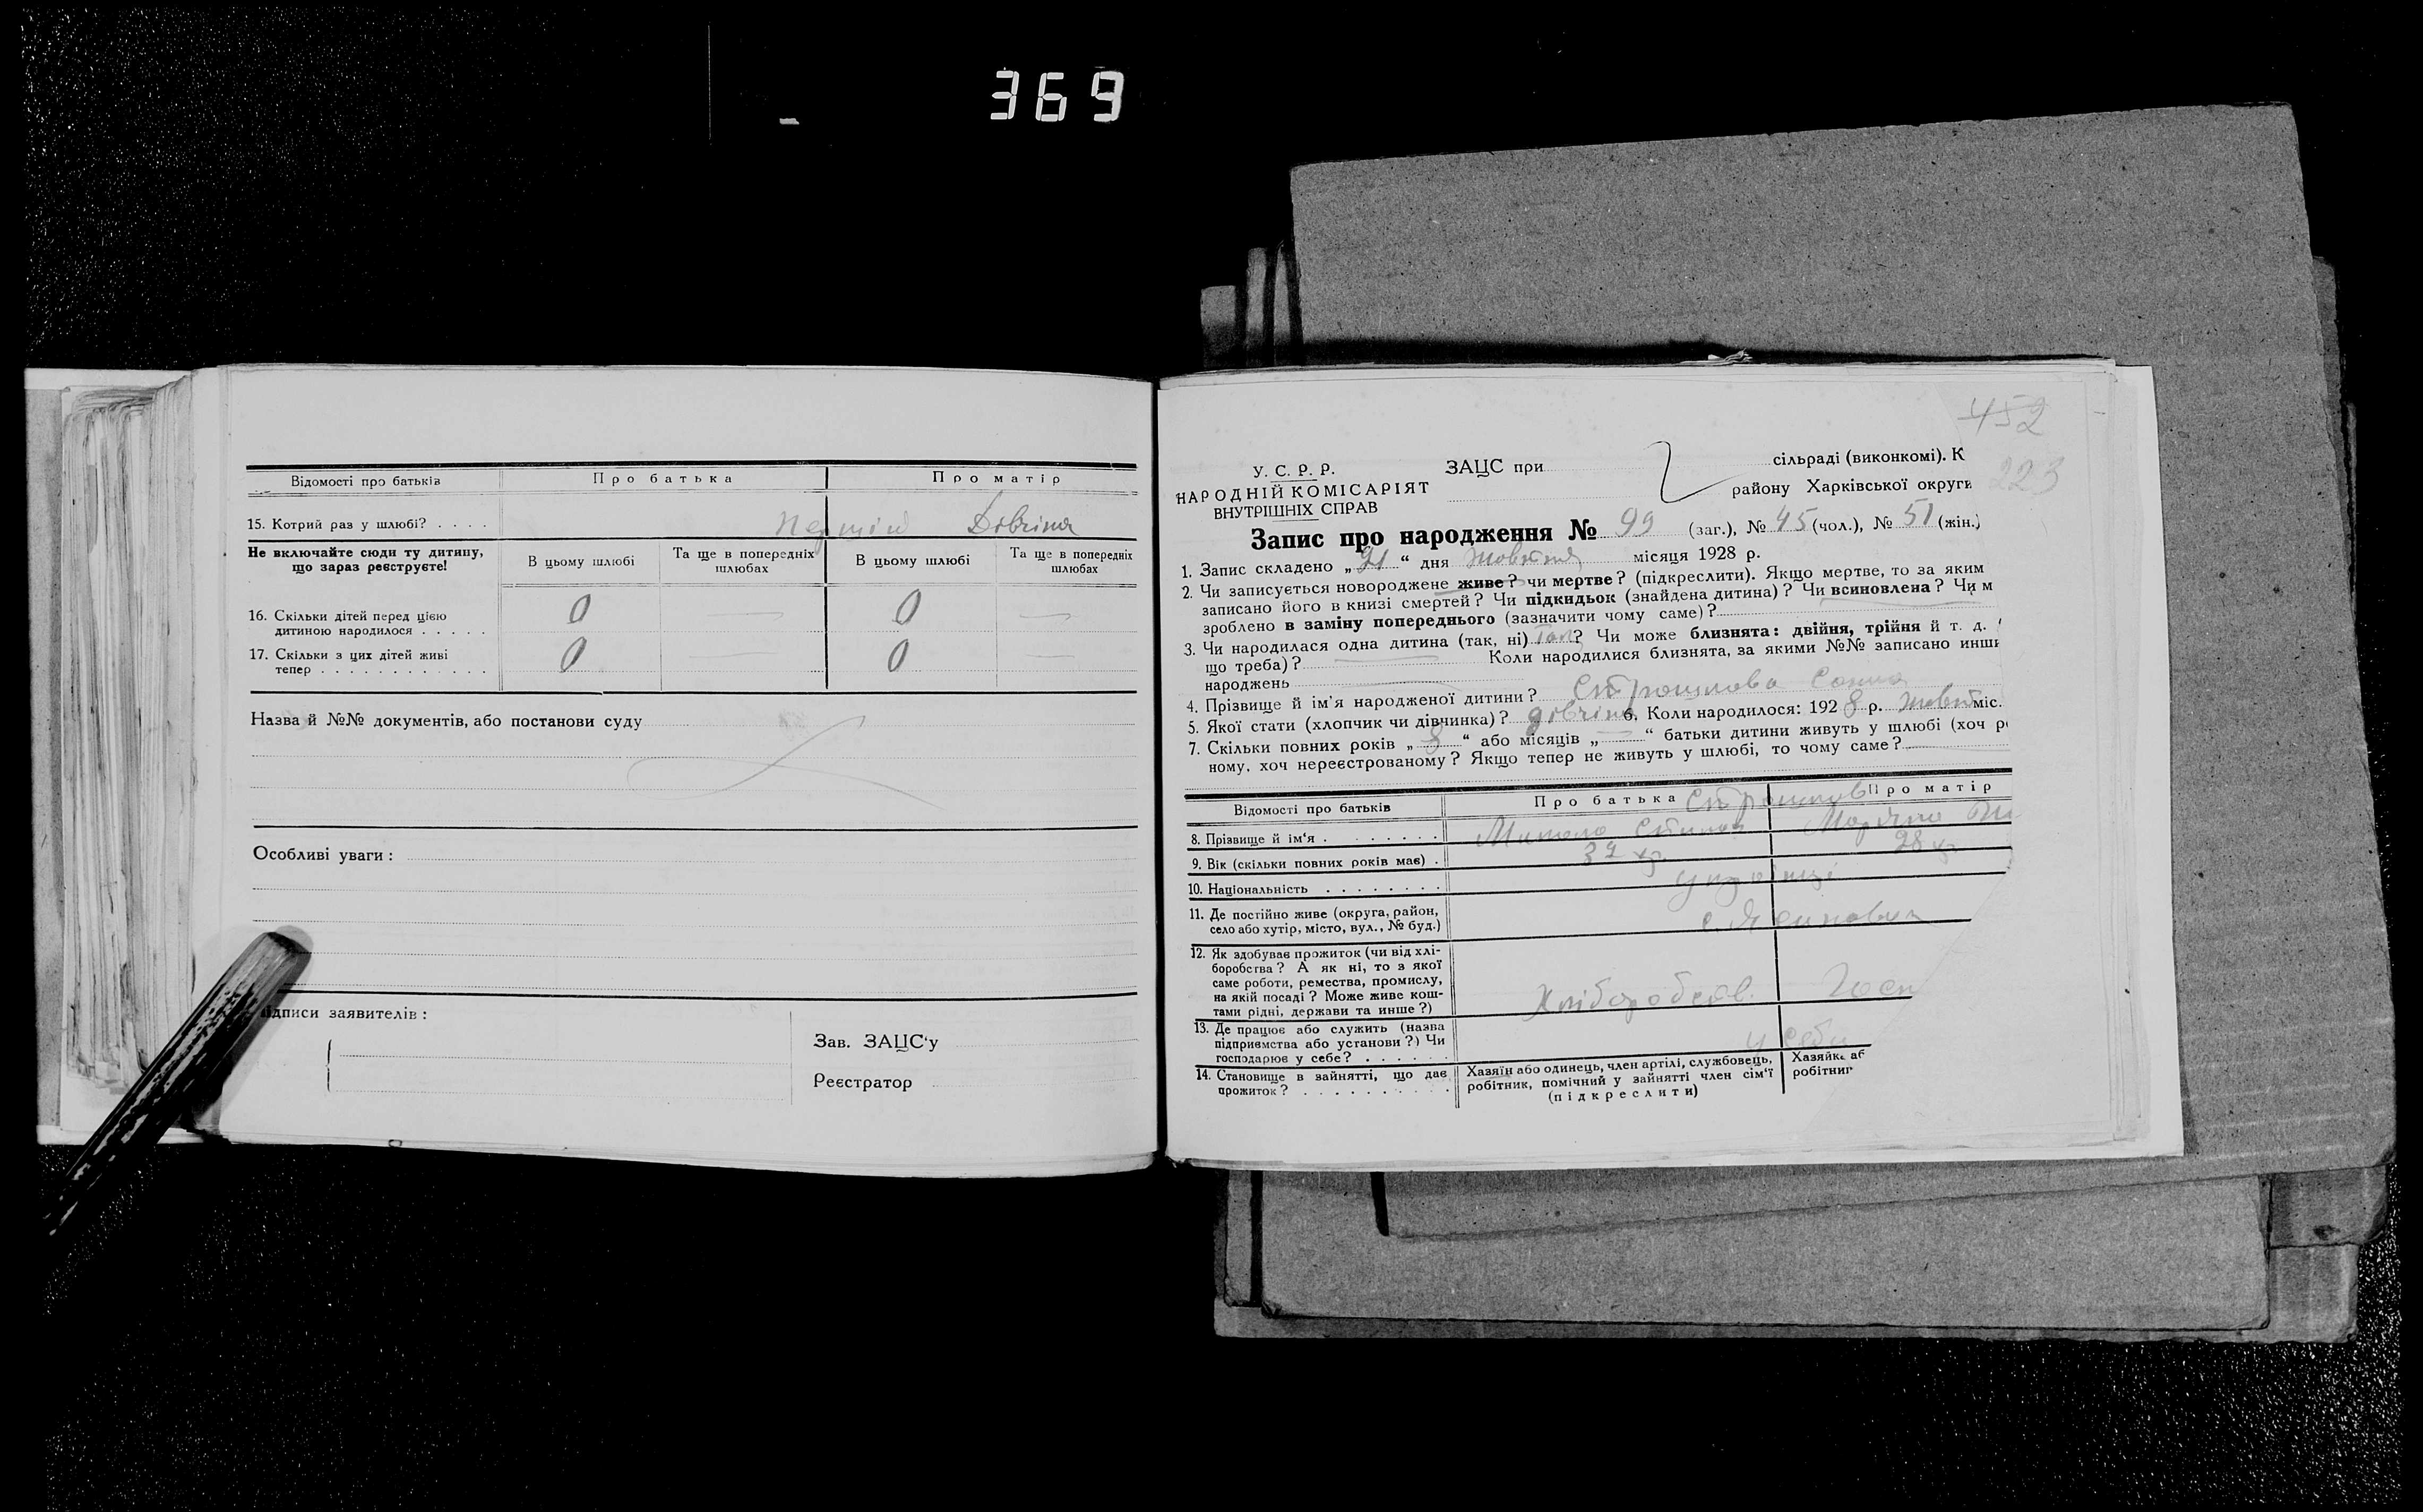 369
Відомості про батьків
Про батька
Про матір
15. Котрий раз у шлюбі? . . . .
Не включайте сюди ту дитину,
що зараз реєструєте!
В цьому шлюбі
Та ще в попередніх
шлюбах
В цьому шлюбі
Та ще в попередніх
шлюбах
16. Скільки дітей перед цією
дитиною народилося . . . . .
0 — 0 —
17. Скільки з цих дітей живі
тепер . . . . . . . . . . . .
0 — 0 —
Назва й №№ документів, або постанови суду
Особливі уваги :
ідписи заявителів :
Зав. ЗАЦС‘у
Реєстратор
452
223
У. С. Р. Р.
НАРОДНІЙ КОМІСАРІЯТ
ВНУТРІШНІХ СПРАВ
ЗАЦС при
сільраді (виконкомі). К
району Харківської округи
Запис про народження № 99 (заг.), № 45 (чол.), № 51 (жін.)
1. Запис складено „21“ дня жовтня місяця 1928 р.
2. Чи записується новороджене живе? чи мертве? (підкреслити). Якщо мертве, то за яким
записано його в книзі смертей? Чи підкидьок (знайдена дитина)? Чи всиновлена? Чи м
зроблено в заміну попереднього (зазначити чому саме)?
3. Чи народилася одна дитина (так, ні) так? Чи може близнята: двійня, трійня й т. д.
що треба)? Коли народилися близнята, за якими №№ записано инши
народжень
4. Прізвище й ім'я народженої дитини?
5. Якої стати (хлопчик чи дівчинка)? дівчина 6. Коли народилося: 1928 р. жовт міс.
7. Скільки повних років „8“ або місяців „—“ батьки дитини живуть у шлюбі (хоч р
ному, хоч нереєстрованому? Якщо тепер не живуть у шлюбі, то чому саме?
Відомості про батьків
Про батька
Про матір
8. Прізвище й ім‘я . . . . . . .
9. Вік (скільки повних років має) .
28
10. Національність . . . . . . . .
українці
11. Де постійно живе (округа, район,
село або хутір, місто, вул., № буд.)
12. Як здобуває прожиток (чи від хлі-
боробства? А як ні, то з якої
саме роботи, ремества, промислу,
на якій посаді? Може живе кош-
тами рідні, держави та инше?)
Хліборобств. Госп
13. Де працює або служить (назва
підприємства або установи?) Чи
господарює у себе? . . . . . .
у себе
14. Становище в зайнятті, що дає
прожиток? . . . . . . . . . .
Хазяїн або одинець, член артілі, службовець,
робітник, помічний у зайнятті член сім‘ї
(підкреслити)
Хазяйка аб
робітниг